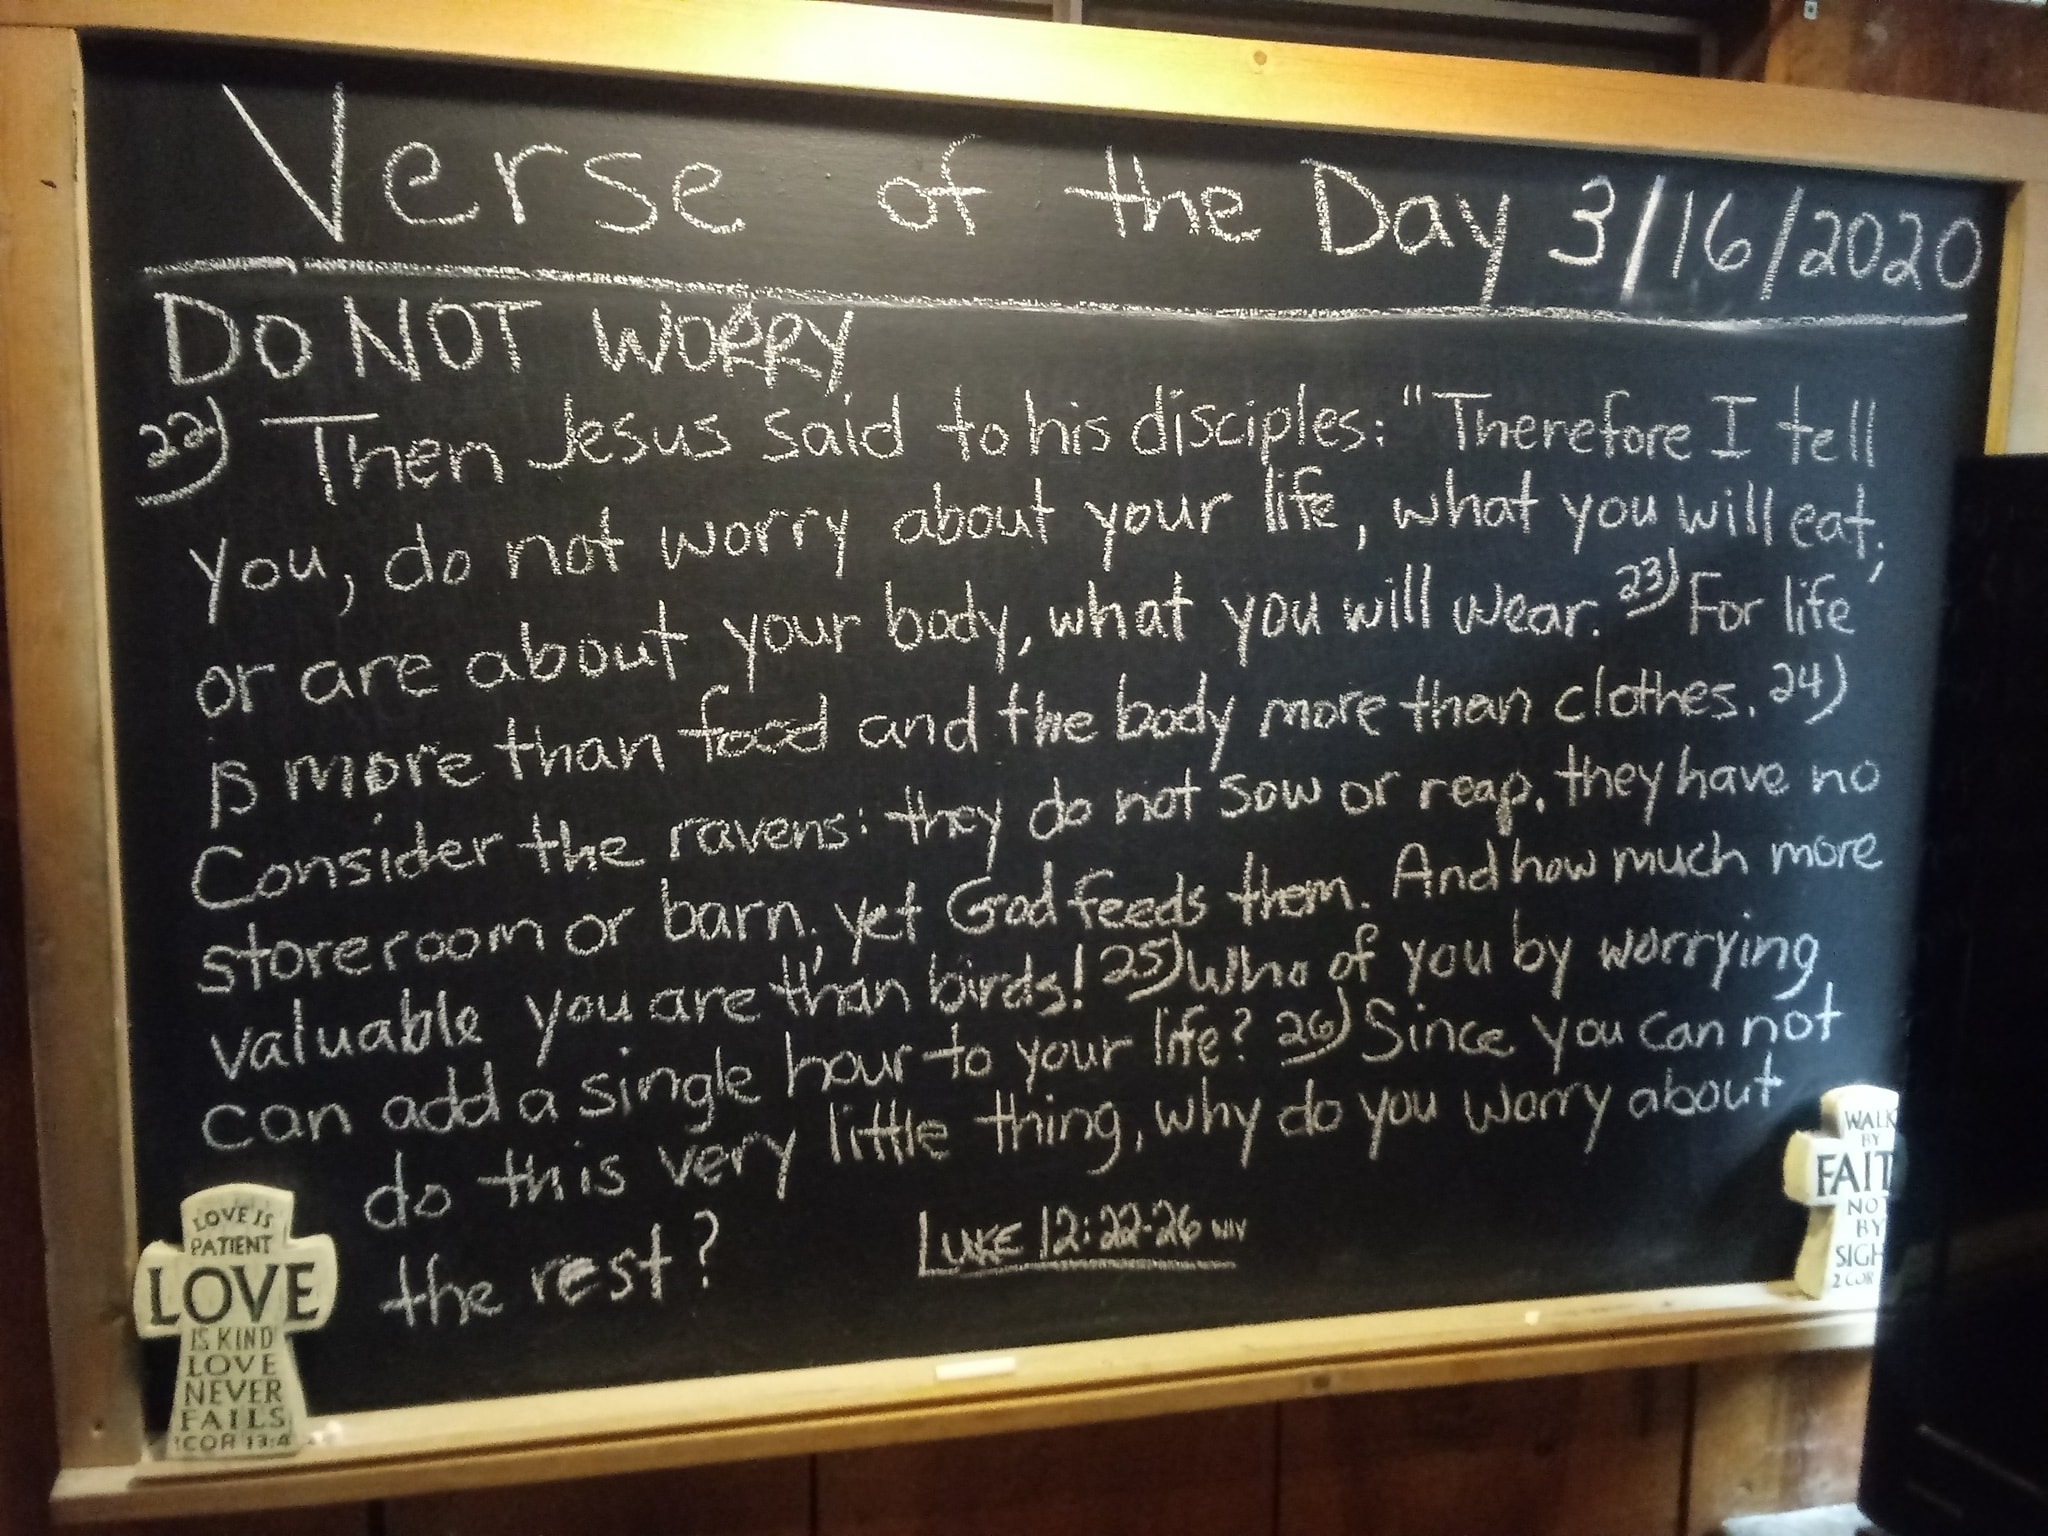 Verse of the Day 3/16/2020
DO NOT WORRY
22) Then Jesus said to his disciples: "Therefore I tell
you, do not worry about your life, what you will eat;
or are about your body, what you will wear. 23) For life
is more than food and the body more than clothes. 24)
Consider the ravens: they do not sow or reap, they have no
storeroom or barn; yet God feeds them. And how much more
valuable you are than birds! 25) Who of you by worrying
can add a single hour to your life? 26) Since you can not
do this very little thing, why do you worry about
the rest?
LUKE 12:22-26 NIV
LOVE IS
PATIENT
LOVE
IS KIND
LOVE
NEVER
FAILS
1COR 13:4
WALK
BY
FAIT
NO
BY
SIGH
2 COR